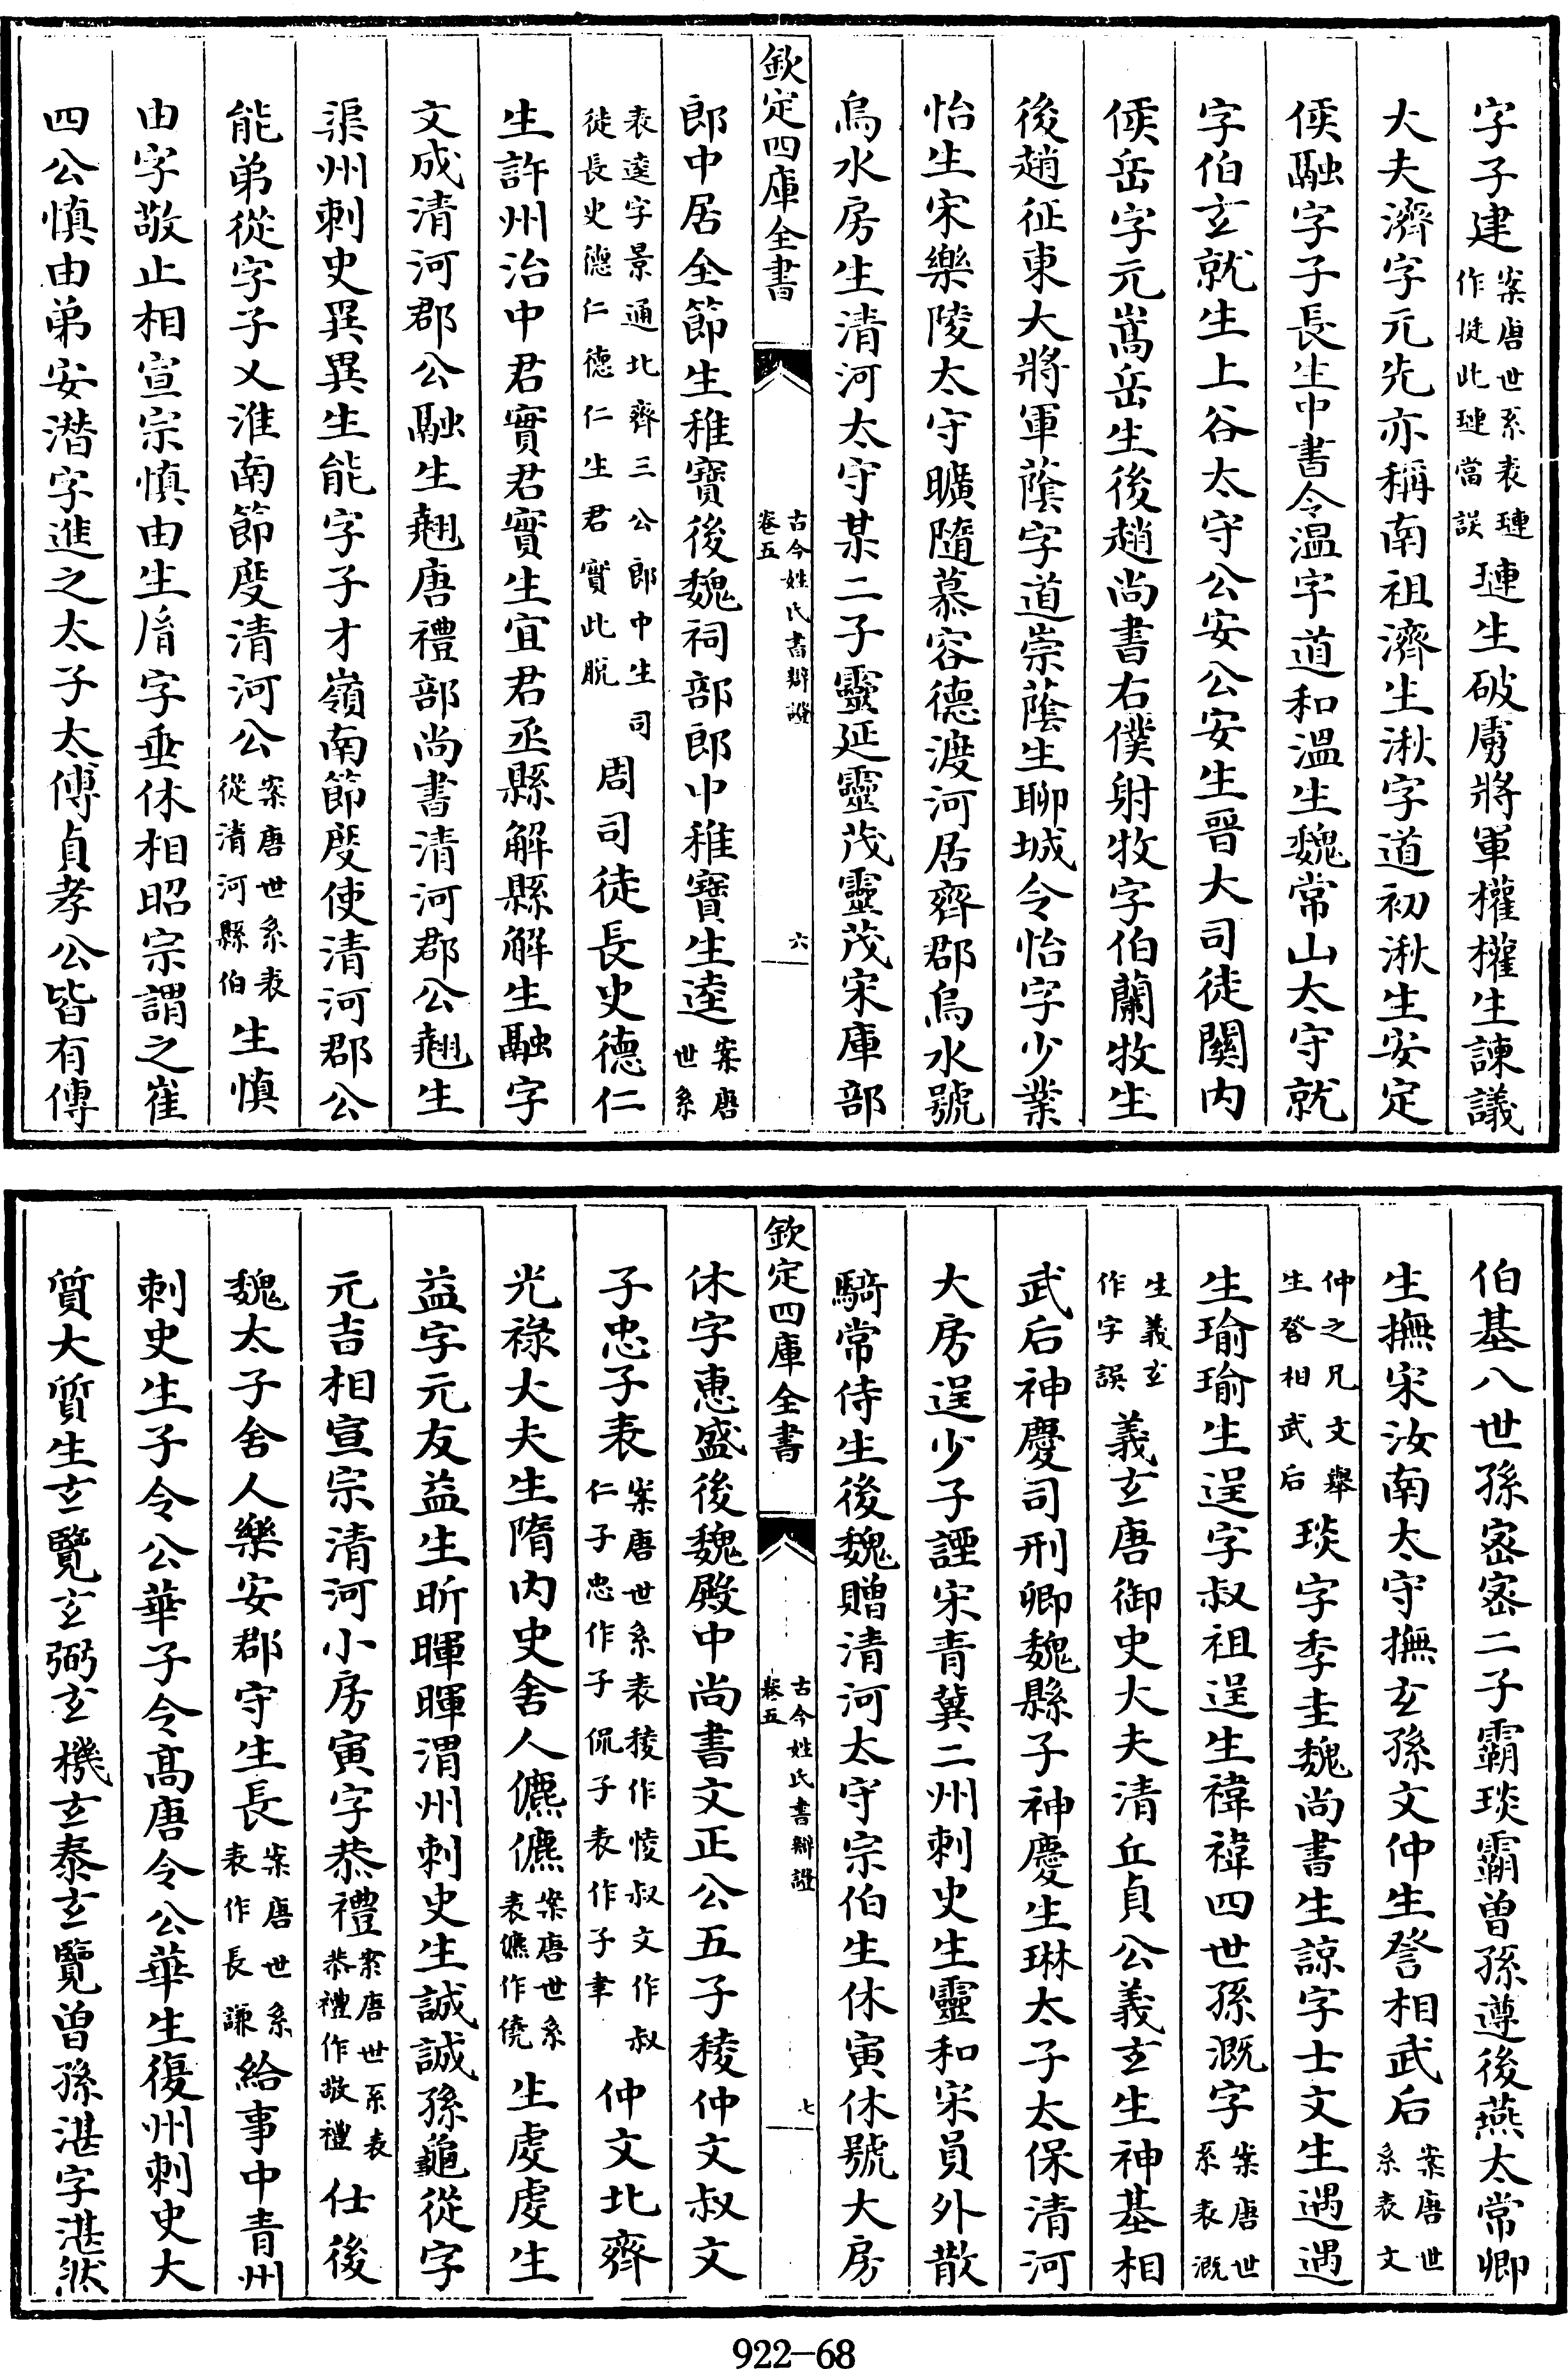 字子建案唐世系表璉作挺此璉當誤璉生破虜將軍權權生諫議
大夫濟字元先亦稱南祖濟生湫字道初湫生安定
侯融字子長生中書令温字道和溫生魏常山太守就
字伯玄就生上谷太守公安公安生晉大司徒關内
侯岳字元嵩岳生後趙尚書右僕射牧字伯蘭牧生
後趙征東大將軍蔭字道崇蔭生聊城令怡字少業
怡生宋樂陵太守曠隨慕容德渡河居齊郡烏水號
烏水房生清河太守某二子靈延靈茂靈茂宋庫部
欽定四庫全書
古今姓氏書辯證
卷五
六
郎中居全節生稚寶後魏祠部郎中稚寶生逵案唐世系
表逵字景通北齊三公郎中生司徒長史德仁德仁生君實此脫周司徒長史德仁
生許州治中君實君實生宜君丞縣解縣解生融字
文成清河郡公融生翹唐禮部尚書清河郡公翹生
渠州刺史異異生能字子才嶺南節度使清河郡公
能弟從字子乂淮南節度清河公案唐世系表從清河縣伯生慎
由字敬止相宣宗慎由生㣧字垂休相昭宗謂之崔
四公慎由弟安潛字進之太子太傅貞孝公皆有傳
伯基八世孫密密二子霸琰霸曾孫遵後燕太常卿
生撫宋汝南太守撫玄孫文仲生詧相武后案唐世系表文
仲之兄文舉生詧相武后琰字季圭魏尚書生諒字士文生遇遇
生瑜瑜生逞字叔祖逞生禕禕四世孫溉字案唐世系表溉
生義玄作字誤義玄唐御史大夫清丘貞公義玄生神基相
武后神慶司刑卿魏縣子神慶生琳太子太保清河
大房逞少子諲宋青冀二州刺史生靈和宋員外散
騎常侍生後魏贈清河太守宗伯生休寅休號大房
欽定四庫全書
古今姓氏書辯證
卷五
七
休字惠盛後魏殿中尚書文正公五子稜仲文叔文
子忠子表案唐世系表稜作㥄叔文作叔仁子忠作子侃子表作子聿仲文北齊
光祿大夫生隋内史舍人儦儦案唐世系表儦作僥生處處生
益字元友益生昕暉暉渭州刺史生誠誠孫龜從字
元吉相宣宗清河小房寅字恭禮案唐世系表恭禮作敬禮仕後
魏太子舍人樂安郡守生長案唐世系表作長謙給事中青州
刺史生子令公華子令髙唐令公華生復州刺史大
質大質生玄覽玄弼玄機玄泰玄覽曾孫湛字湛然
922-68